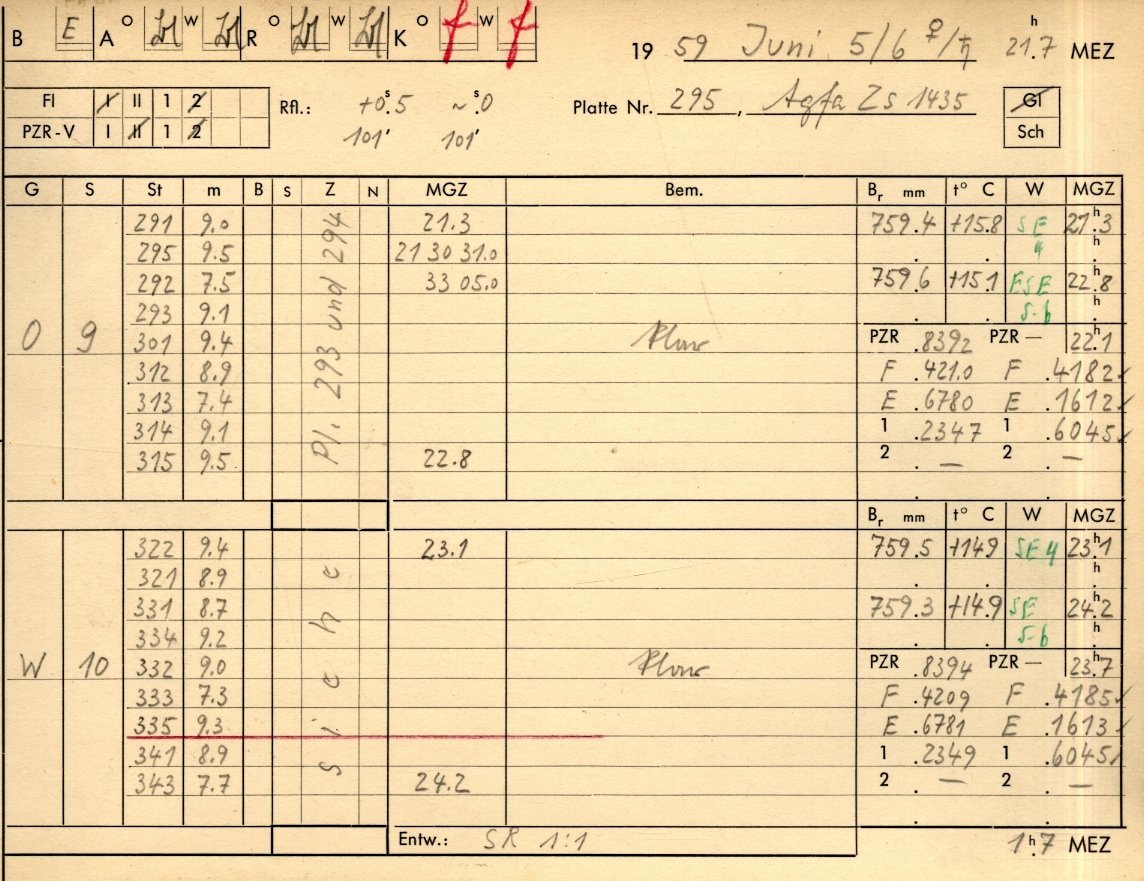 B E A O W R O W K O f W f
19 59 Juni 5/6 ♀/♄ 21h.7 MEZ
Fl I II 1 2
PZR-V I II 1 2
Rfl.: +0s.5 ~s0
101' 101'
Platte Nr. 295, Agfa Zs 1435
Gl
Sch
G S St m B S Z N MGZ Bem. Br mm t° C W MGZ
291 9.0 21.3 759.4 +15.8 SE 21h.3
295 9.5 21 30 31.0 . . 4 h.
292 7.5 33 05.0 759.6 +15.1 ESE 22h.8
293 9.1 . . 5-6 h.
O 9 301 9.4 PZR .8392 PZR — 22h.1
312 8.9 F .4210 F .4182 ✓
313 7.4 E .6780 E .1612 ✓
314 9.1 1 .2347 1 .6045 ✓
315 9.5 22.8 2 . — 2 . —
Br mm t° C W MGZ
322 9.4 23.1 759.5 +14.9 SE 4 23h.1
321 8.9 . . h.
331 8.7 759.3 +14.9 SE 24h.2
334 9.2 . . 5-6 h.
W 10 332 9.0 PZR .8394 PZR — 23h.7
333 7.3 F .4209 F .4185 ✓
335 9.3 E .6781 E .1613 ✓
341 8.9 1 .2349 1 .6045 ✓
343 7.7 24.2 2 . — 2 . —
Siehe Pl. 293 und 294
Entw.: SR 1:1 1h.7 MEZ